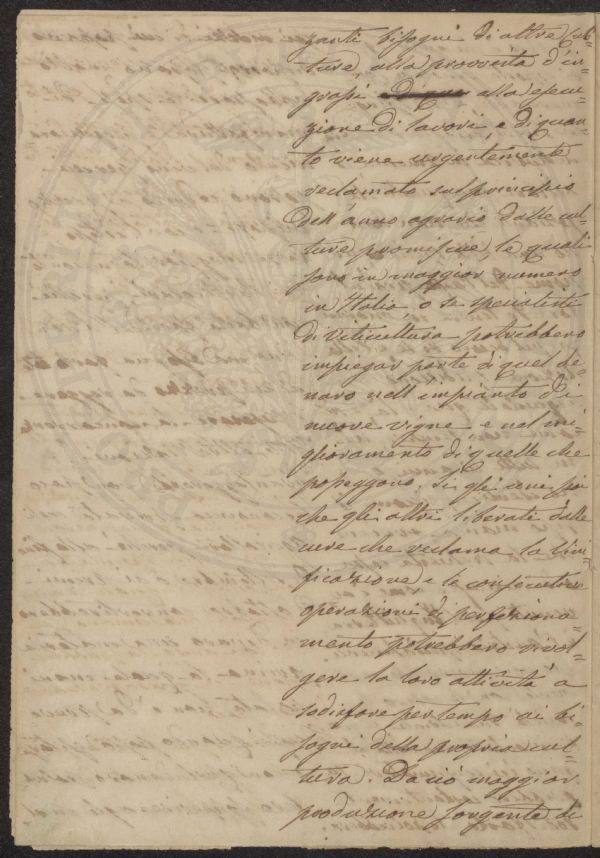 zanti bisogni di altre cul=
ture, alla provvista d'in=
grassi alla esecu=
zione di lavori, e di quan=
to viene urgentemente
reclamato sul principio
dell'anno agrario dalle cul=
ture promiscue, le quali
sono in maggior numero
in Italia o se specialisti
di viticultura potrebbero
impiegar parte di quel de=
naro nell'impianto di
nuove vigne, e nel mi=
glioramento di quelle che
posseggono. Sì gli uni poi
che gli altri liberati dalle
cure che reclama la vini=
ficazione e le consecutive
operazioni di perfeziona=
mento potrebbero rivol=
gere la loro attività a
sodisfare per tempo ai bi=
sogni della propria cul=
tura. Da ciò maggior
produzione sorgente di